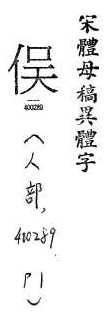 宋體母稿異體字
俣
400289
（人部，400289
P1）